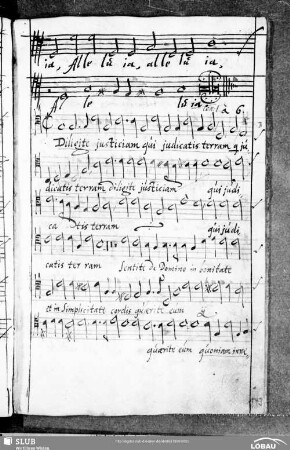 ia, Alle lu ia, alle lu ia,
Al le lu ia
à 6.
Diligite justiciam qui judicatis terram q ju
dicatis terram diligite justiciam qui judi
ca tis terram qui judi
catis ter ram Sentite de Domino in bonitate
et in simplicitate cordis quærite eum
quærite eum quoniam inve
SLUB
Wir führen Wissen.
LÖBAU